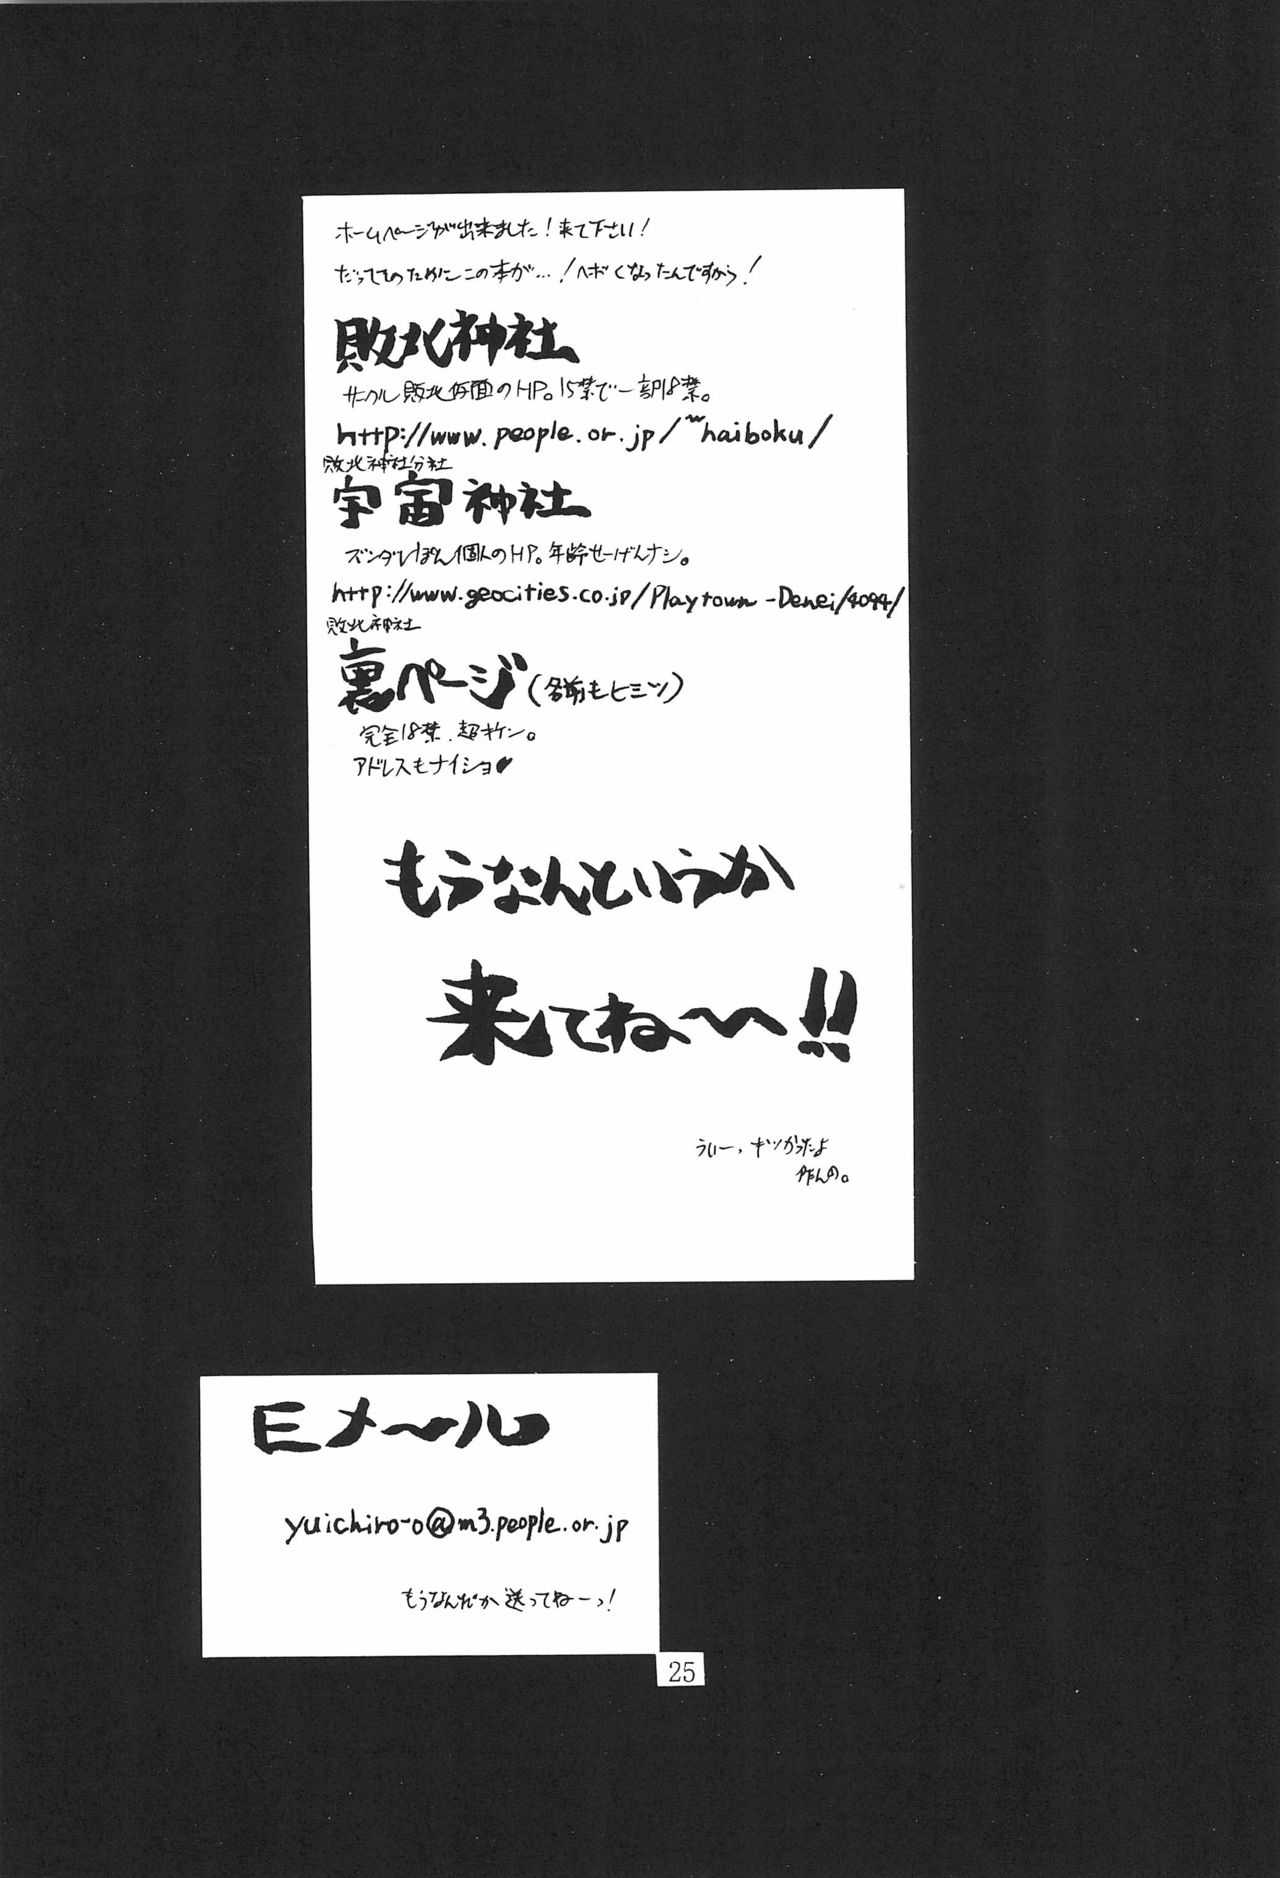 ホームページが出来ました!来て下さい!
だってそのためにこの本が…!ヘボくなったんですから!
敗北神社
サークル敗北仮面のHP。15禁で一部18禁。
http://www.people.or.jp/~haiboku/
敗北神社分社
宇宙神社
ズンダレぽん個人のHP。年齢せーげんナシ。
http://www.geocities.co.jp/Playtown-Denei/4094/
敗北神社
裏ページ(名前もヒミツ)
完全18禁、超キケン。
アドレスもナイショ♥
もうなんというか
来てね〜〜!!
うぃー、キツかったよ
作んの。
Eメール
yuichiro-o@m3.people.or.jp
もうなんだか送ってねーっ!
25